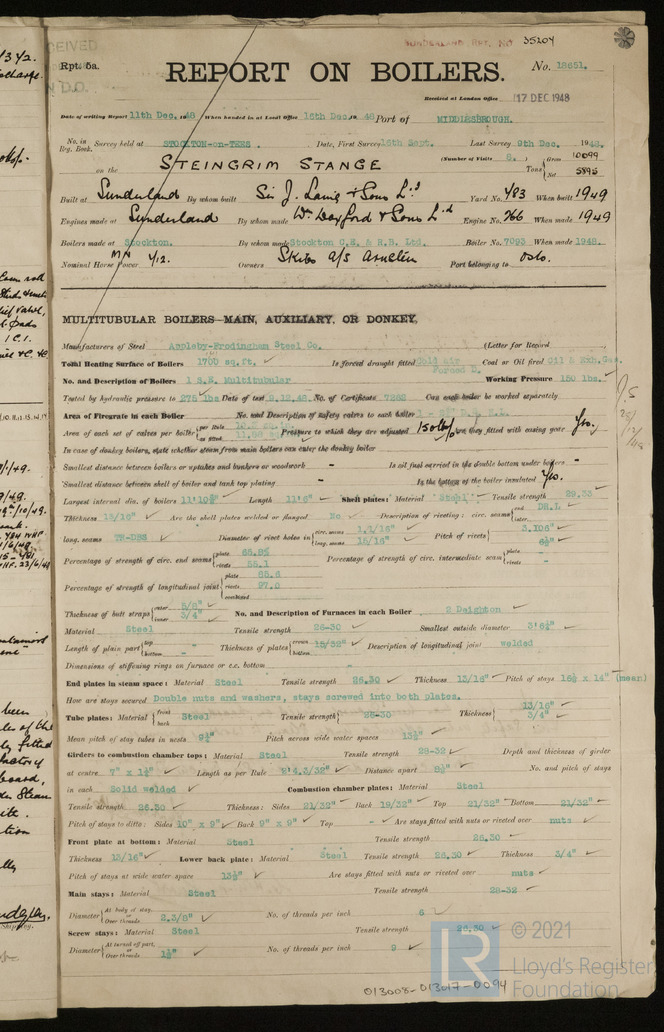 SUNDERLAND RPT. NO 35204
Rpt. 5a.
REPORT ON BOILERS.
No. 18651.
Received at London Office 17 DEC 1948
Date of writing Report 11th Dec. 48 When handed in at Local Office 16th Dec. 48 Port of MIDDLESBROUGH.
No. in Reg. Book. Survey held at STOCKTON-on-TEES. Date, First Survey 16th Sept. Last Survey 9th Dec. 1948.
on the STEINGRIM STANGE (Number of Visits 8.) Tons Gross 10099 Net 5895
Built at Sunderland By whom built Sir J. Laing & Sons Ld. Yard No. 783 When built 1949
Engines made at Sunderland By whom made Wm Doxford & Sons Ld Engine No. 266 When made 1949
Boilers made at Stockton. By whom made Stockton C.E. & R.B. Ltd. Boiler No. 7093 When made 1948.
Nominal Horse Power MN 412. Owners Skibs a/s Port belonging to Oslo.
MULTITUBULAR BOILERS—MAIN, AUXILIARY, OR DONKEY.
Manufacturers of Steel Appleby-Frodingham Steel Co. (Letter for Record
Total Heating Surface of Boilers 1700 sq.ft. Is forced draught fitted Cold air Forced D. Coal or Oil fired Oil & Exh.Gas
No. and Description of Boilers 1 S.B. Multitubular Working Pressure 150 lbs.
Tested by hydraulic pressure to 275 lbs Date of test 9.12.48 No. of Certificate 7262 Can each boiler be worked separately
Area of Firegrate in each Boiler No. and Description of safety valves to each boiler
Area of each set of valves per boiler per Rule as fitted Pressure to which they are adjusted 150 lb/□" Are they fitted with easing gear Yes.
In case of donkey boilers, state whether steam from main boilers can enter the donkey boiler
Smallest distance between boilers or uptakes and bunkers or woodwork - Is oil fuel carried in the double bottom under boilers -
Smallest distance between shell of boiler and tank top plating - Is the bottom of the boiler insulated Yes.
Largest internal dia. of boilers 11'10⅜" Length 11'6" Shell plates: Material Steel Tensile strength 29.33
Thickness 15/16" Are the shell plates welded or flanged No Description of riveting: circ. seams end DR.L inter. -
long. seams TR-DBS Diameter of rivet holes in circ. seams 1.1/16" long. seams 15/16" Pitch of rivets 3.106" 6½"
Percentage of strength of circ. end seams plate 65.8% rivets 55.1 Percentage of strength of circ. intermediate seam plate - rivets -
Percentage of strength of longitudinal joint plate 85.6 rivets 97.0 combined
Thickness of butt straps outer 5/8" inner 3/4" No. and Description of Furnaces in each Boiler 2 Deighton
Material Steel Tensile strength 26-30 Smallest outside diameter 3'6¼"
Length of plain part top - bottom - Thickness of plates crown bottom 15/32" Description of longitudinal joint welded
Dimensions of stiffening rings on furnace or c.c. bottom -
End plates in steam space: Material Steel Tensile strength 26.30 Thickness 13/16" Pitch of stays 16½ x 14" (mean)
How are stays secured Double nuts and washers, stays screwed into both plates.
Tube plates: Material front back Steel Tensile strength 26-30 Thickness 13/16" 3/4"
Mean pitch of stay tubes in nests 9¼" Pitch across wide water spaces 13½"
Girders to combustion chamber tops: Material Steel Tensile strength 28-32 Depth and thickness of girder
at centre 7" x 1½" Length as per Rule 2'4.3/32" Distance apart 8½" No. and pitch of stays
in each Solid welded Combustion chamber plates: Material Steel
Tensile strength 26.30 Thickness: Sides 21/32" Back 19/32" Top 21/32" Bottom 21/32"
Pitch of stays to ditto: Sides 10" x 9" Back 9" x 9" Top - Are stays fitted with nuts or riveted over nuts
Front plate at bottom: Material Steel Tensile strength 26.30
Thickness 13/16" Lower back plate: Material Steel Tensile strength 26.30 Thickness 3/4"
Pitch of stays at wide water space 13½" Are stays fitted with nuts or riveted over nuts
Main stays: Material Steel Tensile strength 28-32
Diameter At body of stay, or Over threads 2.3/8" No. of threads per inch 6
Screw stays: Material Steel Tensile strength 26.30
Diameter At turned off part, or Over threads 1½" No. of threads per inch 9
LR © 2021
Lloyd's Register
Foundation
013008-013017-0094